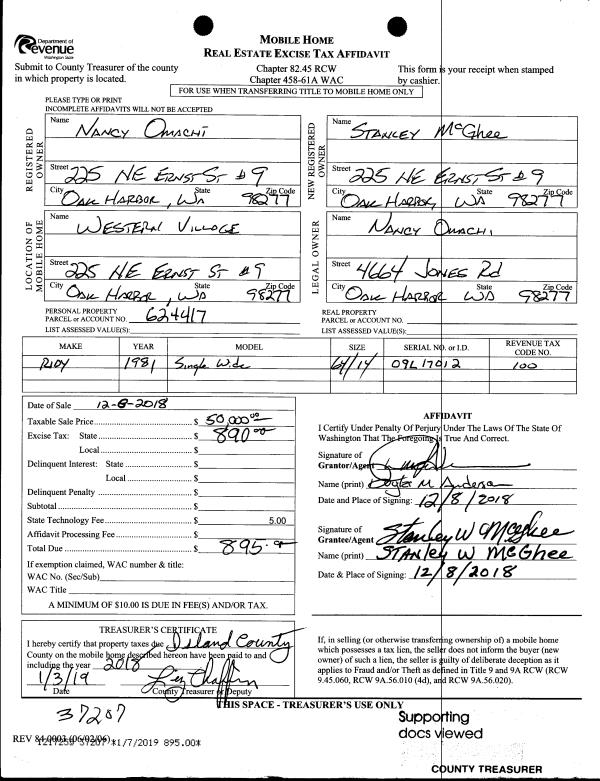 Department of
Revenue
Washington State
MOBILE HOME
REAL ESTATE EXCISE TAX AFFIDAVIT
Submit to County Treasurer of the county
in which property is located.
Chapter 82.45 RCW
Chapter 458-61A WAC
This form is your receipt when stamped
by cashier.
FOR USE WHEN TRANSFERRING TITLE TO MOBILE HOME ONLY
PLEASE TYPE OR PRINT
INCOMPLETE AFFIDAVITS WILL NOT BE ACCEPTED
REGISTERED OWNER
Name
NANCY OMACHI
Street 225 NE ERNST ST #9
City State Zip Code
OAK HARBOR, WA 98277
NEW REGISTERED OWNER
Name
STANLEY McGHEE
Street 225 NE ERNST ST #9
City State Zip Code
OAK HARBOR, WA 98277
LOCATION OF MOBILE HOME
Name
WESTERN VILLAGE
Street 225 NE ERNST ST #9
City State Zip Code
OAK HARBOR, WA 98277
LEGAL OWNER
Name
NANCY OMACHI
Street 4664 JONES Rd
City State Zip Code
OAK HARBOR WA 98277
PERSONAL PROPERTY
PARCEL or ACCOUNT NO. 624417
LIST ASSESSED VALUE(S): $
REAL PROPERTY
PARCEL or ACCOUNT NO.
LIST ASSESSED VALUE(S): $
MAKE YEAR MODEL SIZE SERIAL NO. or I.D. REVENUE TAX CODE NO.
1981 Single Wide 64/14 09L17012 100
Date of Sale 12-8-2018
Taxable Sale Price $ 50,000.00
Excise Tax: State $ 890.00
Local $
Delinquent Interest: State $
Local $
Delinquent Penalty $
Subtotal $
State Technology Fee $ 5.00
Affidavit Processing Fee $
Total Due $ 895.00
If exemption claimed, WAC number & title:
WAC No. (Sec/Sub)
WAC Title
A MINIMUM OF $10.00 IS DUE IN FEE(S) AND/OR TAX.
AFFIDAVIT
I Certify Under Penalty Of Perjury Under The Laws Of The State Of
Washington That The Foregoing Is True And Correct.
Signature of
Grantor/Agent
Name (print) M Anderson
Date and Place of Signing: 12/8/2018
Signature of
Grantee/Agent Stanley W McGhee
Name (print) STANley W McGHee
Date & Place of Signing: 12/8/2018
TREASURER'S CERTIFICATE
I hereby certify that property taxes due Island County
County on the mobile home described hereon have been paid to and
including the year 2018
1/3/19
Date County Treasurer or Deputy
If, in selling (or otherwise transferring ownership of) a mobile home
which possesses a tax lien, the seller does not inform the buyer (new
owner) of such a lien, the seller is guilty of deliberate deception as it
applies to Fraud and/or Theft as defined in Title 9 and 9A RCW (RCW
9.45.060, RCW 9A.56.010 (4d), and RCW 9A.56.020).
THIS SPACE - TREASURER'S USE ONLY
37207
Supporting
docs viewed
REV 84 0003 (06/02/06)
37207*1/7/2019 895.00*
COUNTY TREASURER